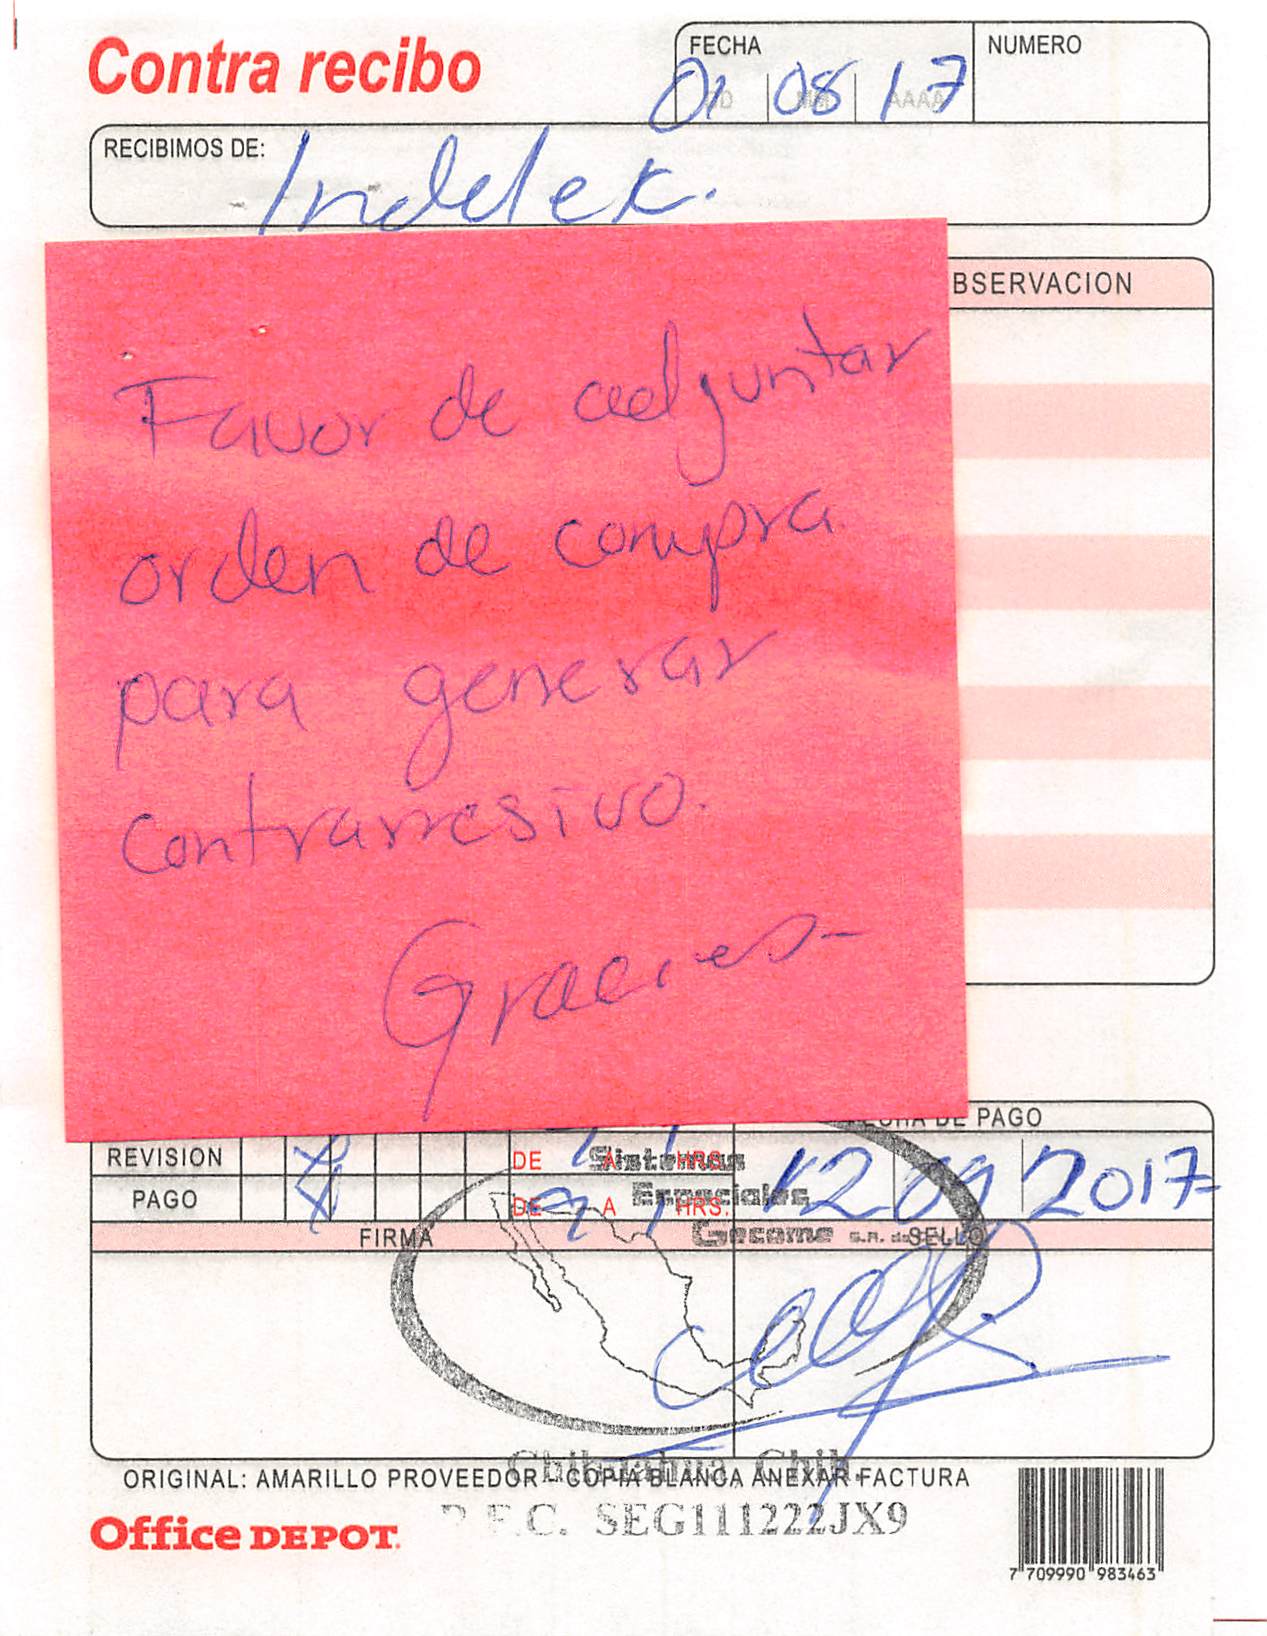 Contra recibo
FECHA
NUMERO
DD MM AAAA
01 08 17
RECIBIMOS DE:
Indelek.
BSERVACION
Favor de adjuntar
orden de compra
para generar
contrarresivo.
Gracias
FECHA DE PAGO
REVISION
DE A HRS.
12 09 2017
PAGO
DE 9 A 1 HRS.
FIRMA
SELLO
Sistemas
Especiales
Gecome S.A. de C.V.
Chihuahua, Chih.
R.F.C. SEG111222JX9
ORIGINAL: AMARILLO PROVEEDOR - COPIA BLANCA ANEXAR FACTURA
Office DEPOT.
7 709990 983463